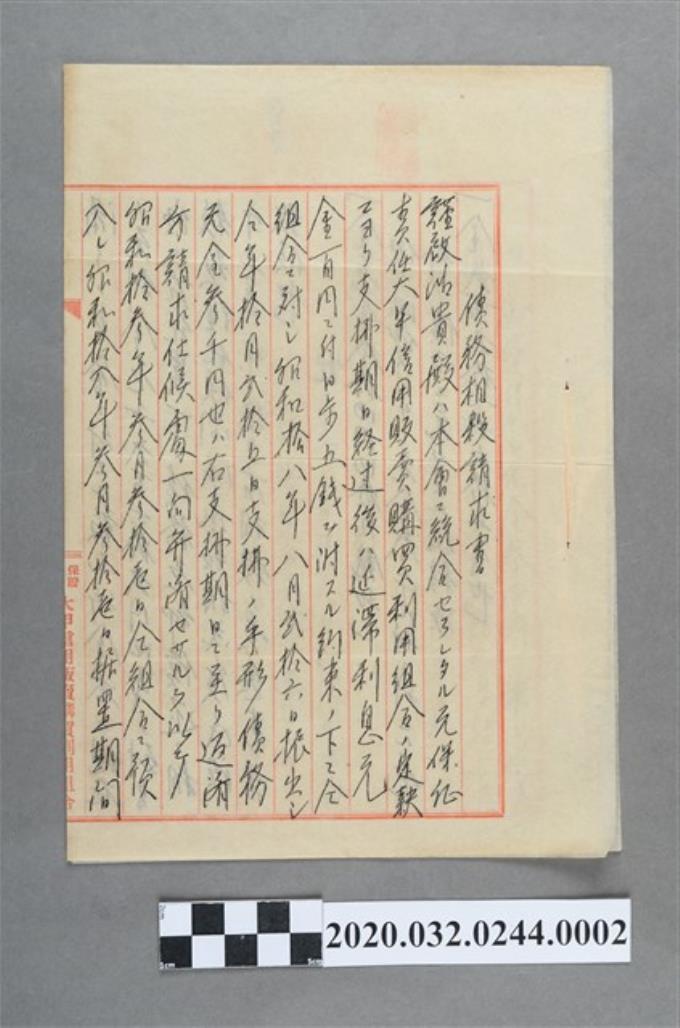 債務相殺請求書
謹啟陳貴殿ハ本會ニ統合セラレタル元保証
責任大甲信用販賣購買利用組合ノ定款
ニヨリ支拂期日経過後ハ延滯利息元
金百円ニ付日歩五錢ヲ附スル約束ノ下ニ仝
組合ニ対シ昭和拾八年八月弐拾六日振出シ
仝年拾月弐拾五日支拂ノ手形債務
元金參千円也ハ右支拂期日ニ至リ返濟
方請求仕候處一向弁濟セサルヲ以テ
昭和拾參年參月參拾壱日仝組合ニ預
入シ昭和拾八年參月參拾壱日据置期間
保證 大甲信用販賣購買利用組合
2020.032.0244.0002
5cm